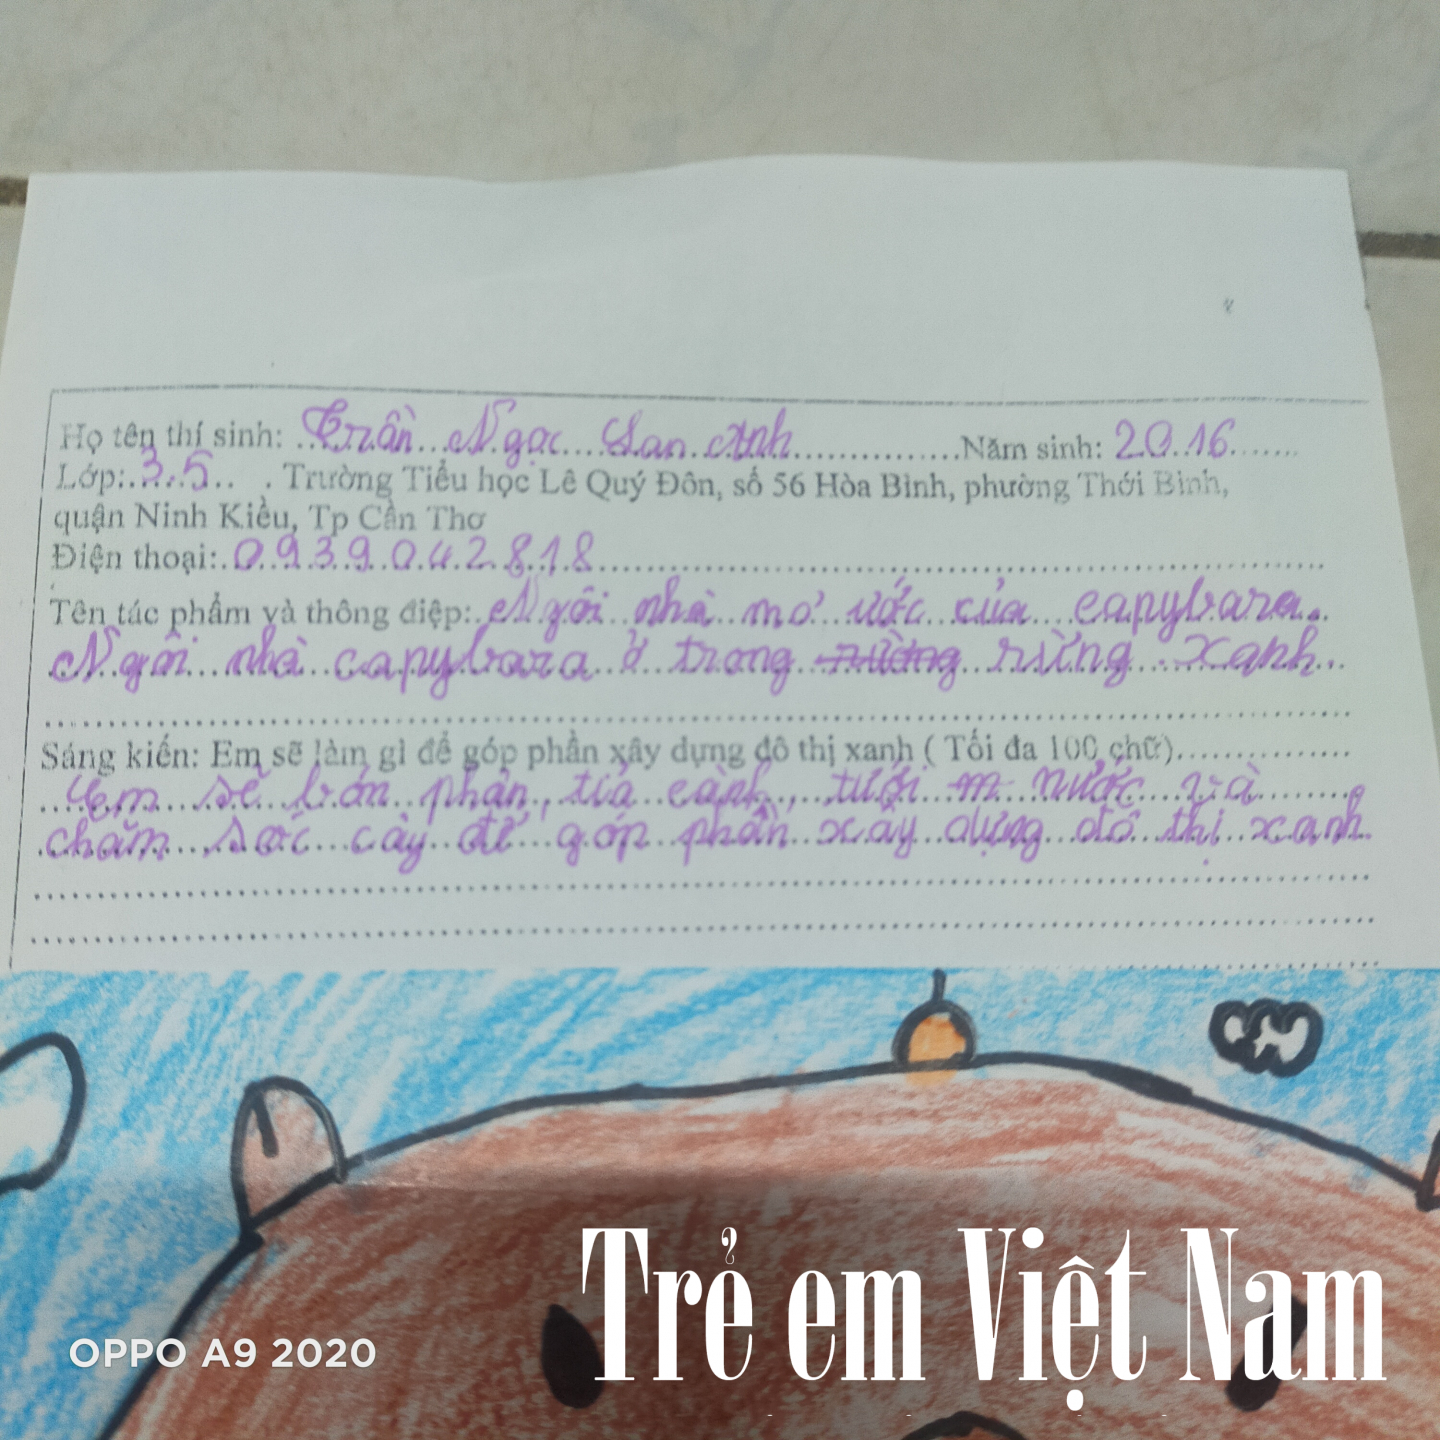 Họ tên thí sinh: Trần Ngọc Lan Anh Năm sinh: 2016
Lớp: 3.5 . Trường Tiểu học Lê Quý Đôn, số 56 Hòa Bình, phường Thới Bình,
quận Ninh Kiều, Tp Cần Thơ
Điện thoại: 0939042818
Tên tác phẩm và thông điệp: Ngôi nhà mơ ước của capybara.
Ngôi nhà capybara ở trong rừng xanh
Sáng kiến: Em sẽ làm gì để góp phần xây dựng đô thị xanh ( Tối đa 100 chữ)
Em sẽ bón phân, tỉa cành, tưới nước và
chăm sóc cây để góp phần xây dựng đô thị xanh.
Trẻ em Việt Nam
OPPO A9 2020